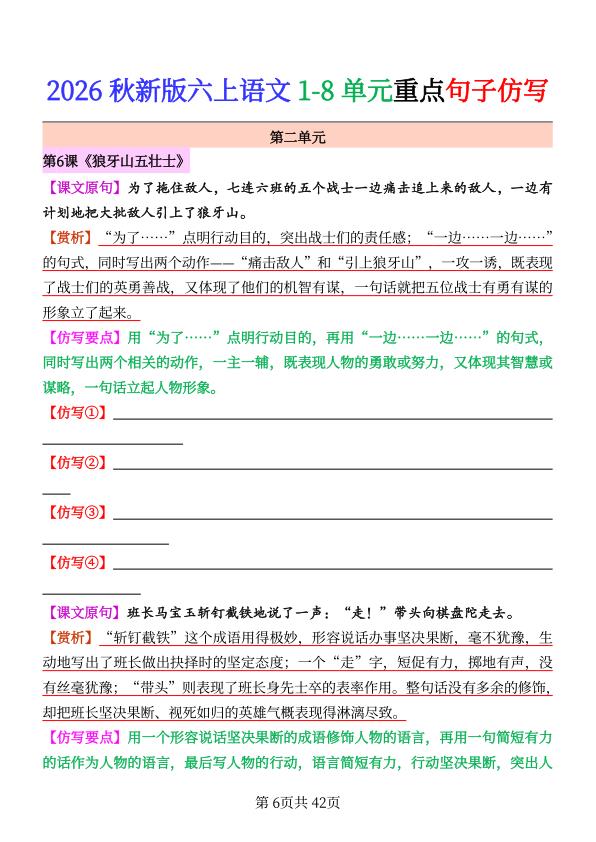 2026 秋新版六上语文 1-8 单元重点句子仿写
第二单元
第6课《狼牙山五壮士》
【课文原句】为了拖住敌人，七连六班的五个战士一边痛击追上来的敌人，一边有
计划地把大批敌人引上了狼牙山。
【赏析】“为了……”点明行动目的，突出战士们的责任感；“一边……一边……”
的句式，同时写出两个动作——“痛击敌人”和“引上狼牙山”，一攻一诱，既表现
了战士们的英勇善战，又体现了他们的机智有谋，一句话就把五位战士有勇有谋的
形象立了起来。
【仿写要点】用“为了……”点明行动目的，再用“一边……一边……”的句式，
同时写出两个相关的动作，一主一辅，既表现人物的勇敢或努力，又体现其智慧或
谋略，一句话立起人物形象。
【仿写①】
【仿写②】
【仿写③】
【仿写④】
【课文原句】班长马宝玉斩钉截铁地说了一声：“走！”带头向棋盘陀走去。
【赏析】“斩钉截铁”这个成语用得极妙，形容说话办事坚决果断，毫不犹豫，生
动地写出了班长做出抉择时的坚定态度；一个“走”字，短促有力，掷地有声，没
有丝毫犹豫；“带头”则表现了班长身先士卒的表率作用。整句话没有多余的修饰，
却把班长坚决果断、视死如归的英雄气概表现得淋漓尽致。
【仿写要点】用一个形容说话坚决果断的成语修饰人物的语言，再用一句简短有力
的话作为人物的语言，最后写人物的行动，语言简短有力，行动坚决果断，突出人
第 6页共 42页